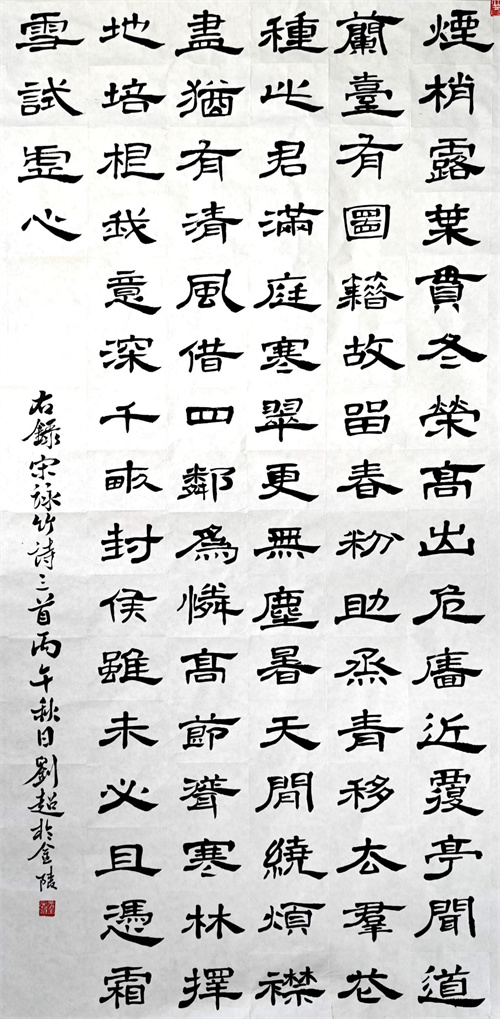 煙梢露葉貫冬榮高出危牆近覆亭聞道
蘭臺有圖籍故留春粉助烝青移去羣花
種此君滿庭寒翠更無塵暑天閒繞煩襟
盡猶有清風借四鄰爲憐高節聳寒林擇
地培根我意深千畝封侯雖未必且憑霜
雪試虛心
右錄宋詠竹詩三首丙午秋日劉超於金陵